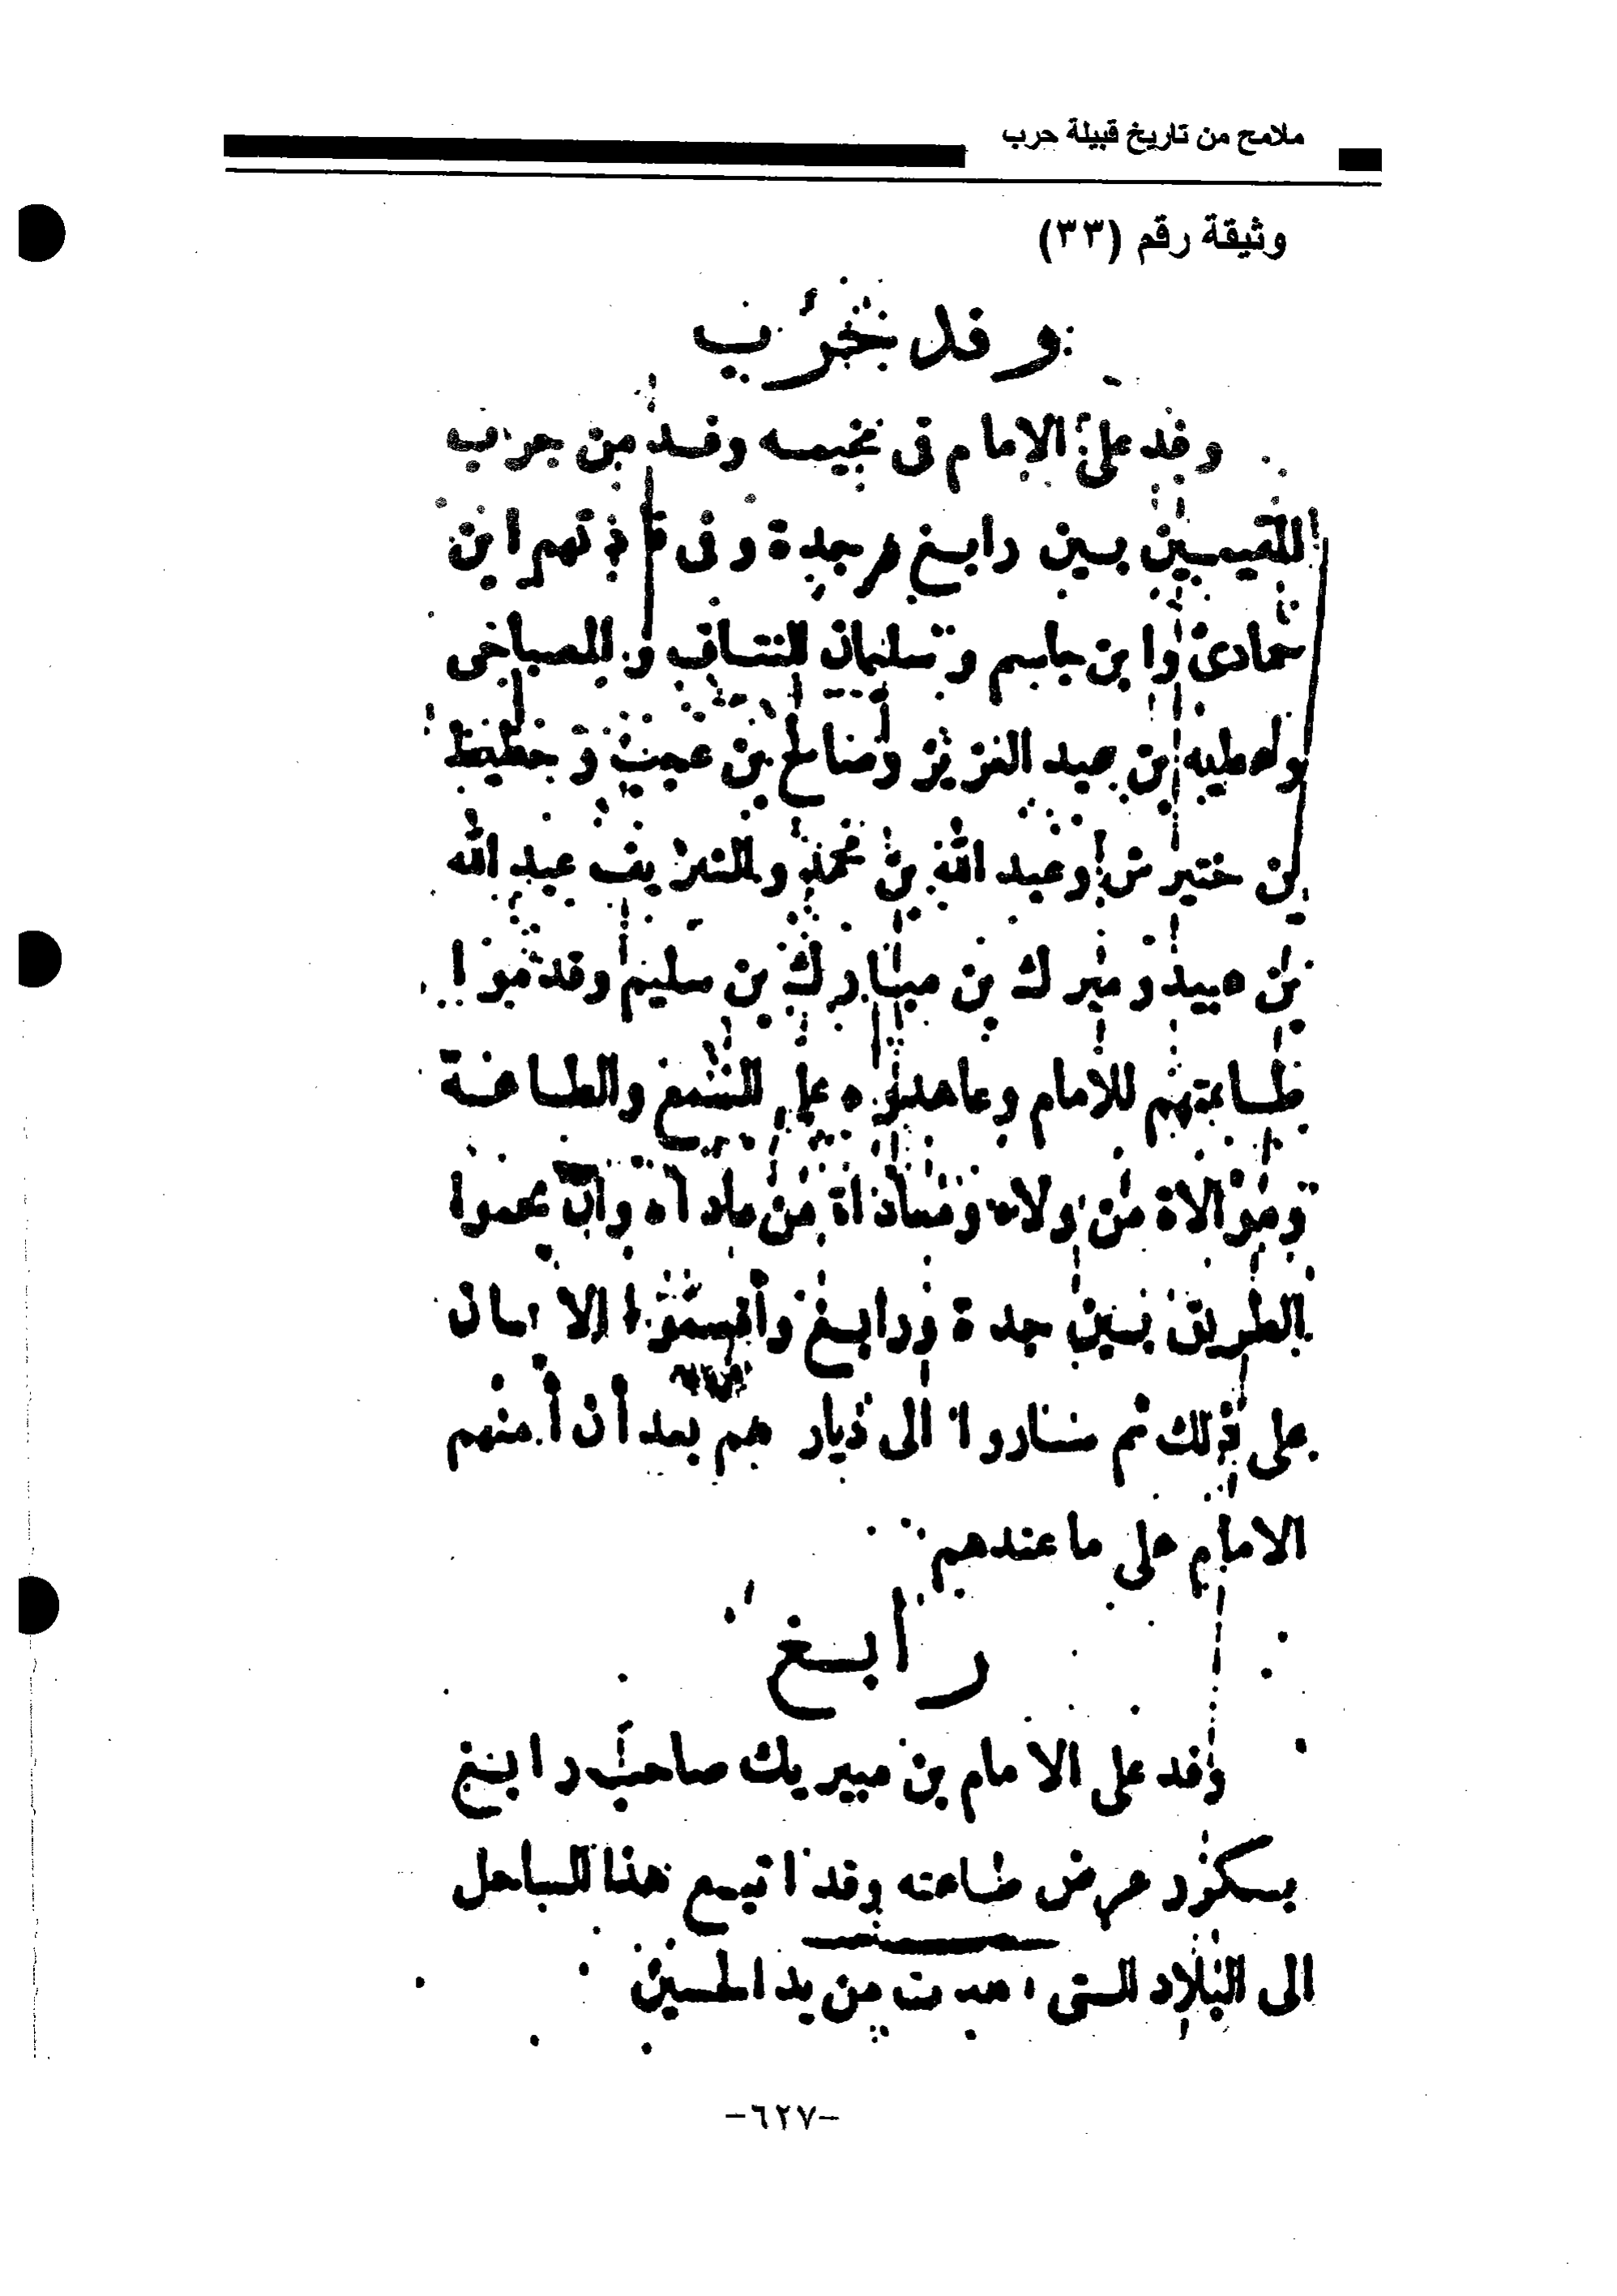 ملامح من تاريخ قبيلة حرب
وثيقة رقم (٣٣)
وفد حرب
وفد على الإمام في مخيمه وفد من حرب
المقيمين بين رابغ وجدة وفي قادتهم ابن
حمادى وابن جاسم وسليمان النتاف والمصباحى
وعطيه بن عبد العزيز وصالح بن عجب وحطيط
بن ختيرش وعبد الله بن محمد والشريف عبد الله
بن هبيد ومبرك بن مبارك بن سليم وقدموا
طاعتهم للامام وعاهدوه على السمع والطاعة
وموالاة من والاه ومعاداة من عاداه وان يحموا
الطريق بين جدة ورابغ وأقسموا الايمان
على ذلك ثم ساروا الى ديارهم بعد أن أمنهم
الامام على ما عندهم
رابغ
وفد على الامام بن مبيريك صاحب رابغ
عرض طاعته وقد اتبع هذا الساحل
الى البلاد التى اخذت من يد الحسين
-٦٢٧-